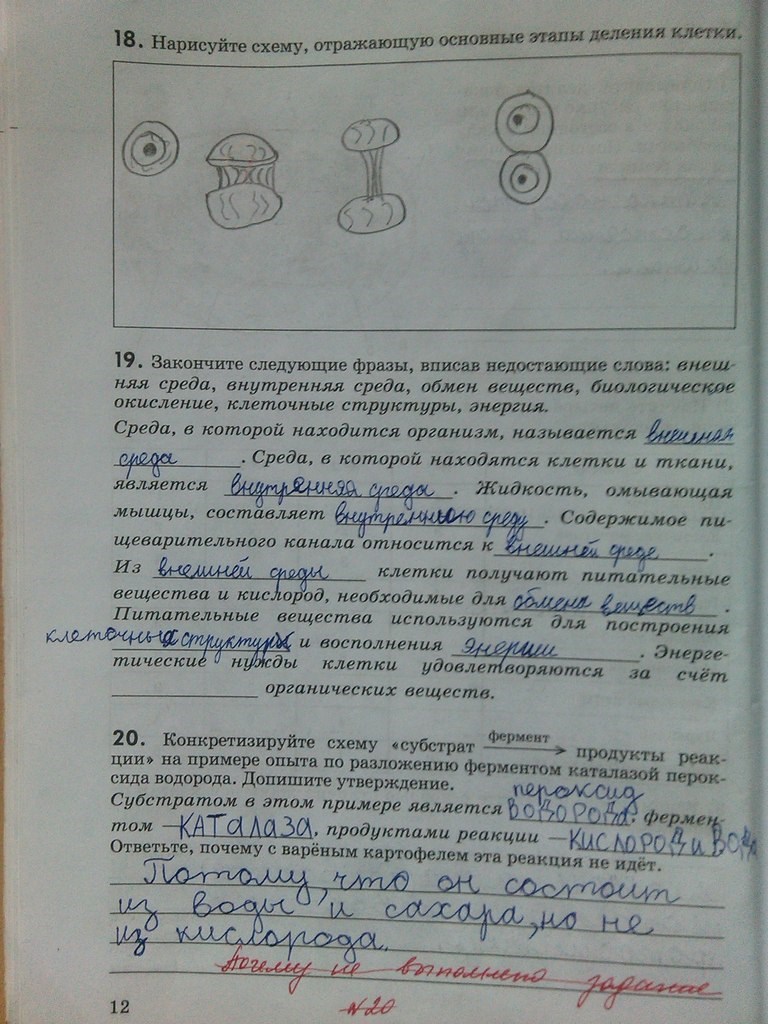 18. Нарисуйте схему, отражающую основные этапы деления клетки.
19. Закончите следующие фразы, вписав недостающие слова: внеш-
няя среда, внутренняя среда, обмен веществ, биологическое
окисление, клеточные структуры, энергия.
Среда, в которой находится организм, называется внешняя
среда. Среда, в которой находятся клетки и ткани,
является внутренняя среда. Жидкость, омывающая
мышцы, составляет внутреннюю среду. Содержимое пи-
щеварительного канала относится к внешней среде.
Из внешней среды клетки получают питательные
вещества и кислород, необходимые для обмена веществ.
Питательные вещества используются для построения
клеточных структур и восполнения энергии. Энерге-
тические нужды клетки удовлетворяются за счёт
органических веществ.
20. Конкретизируйте схему «субстрат фермент → продукты реак-
ции» на примере опыта по разложению ферментом каталазой перок-
сида водорода. Допишите утверждение.
пероксид
Субстратом в этом примере является водорода, фермен-
том — КАТАЛАЗА, продуктами реакции — КИСЛОРОД и ВОДА
Ответьте, почему с варёным картофелем эта реакция не идёт.
Потому, что он состоит
из воды и сахара, но не
из кислорода.
Почему не выполнено задание
№20
12